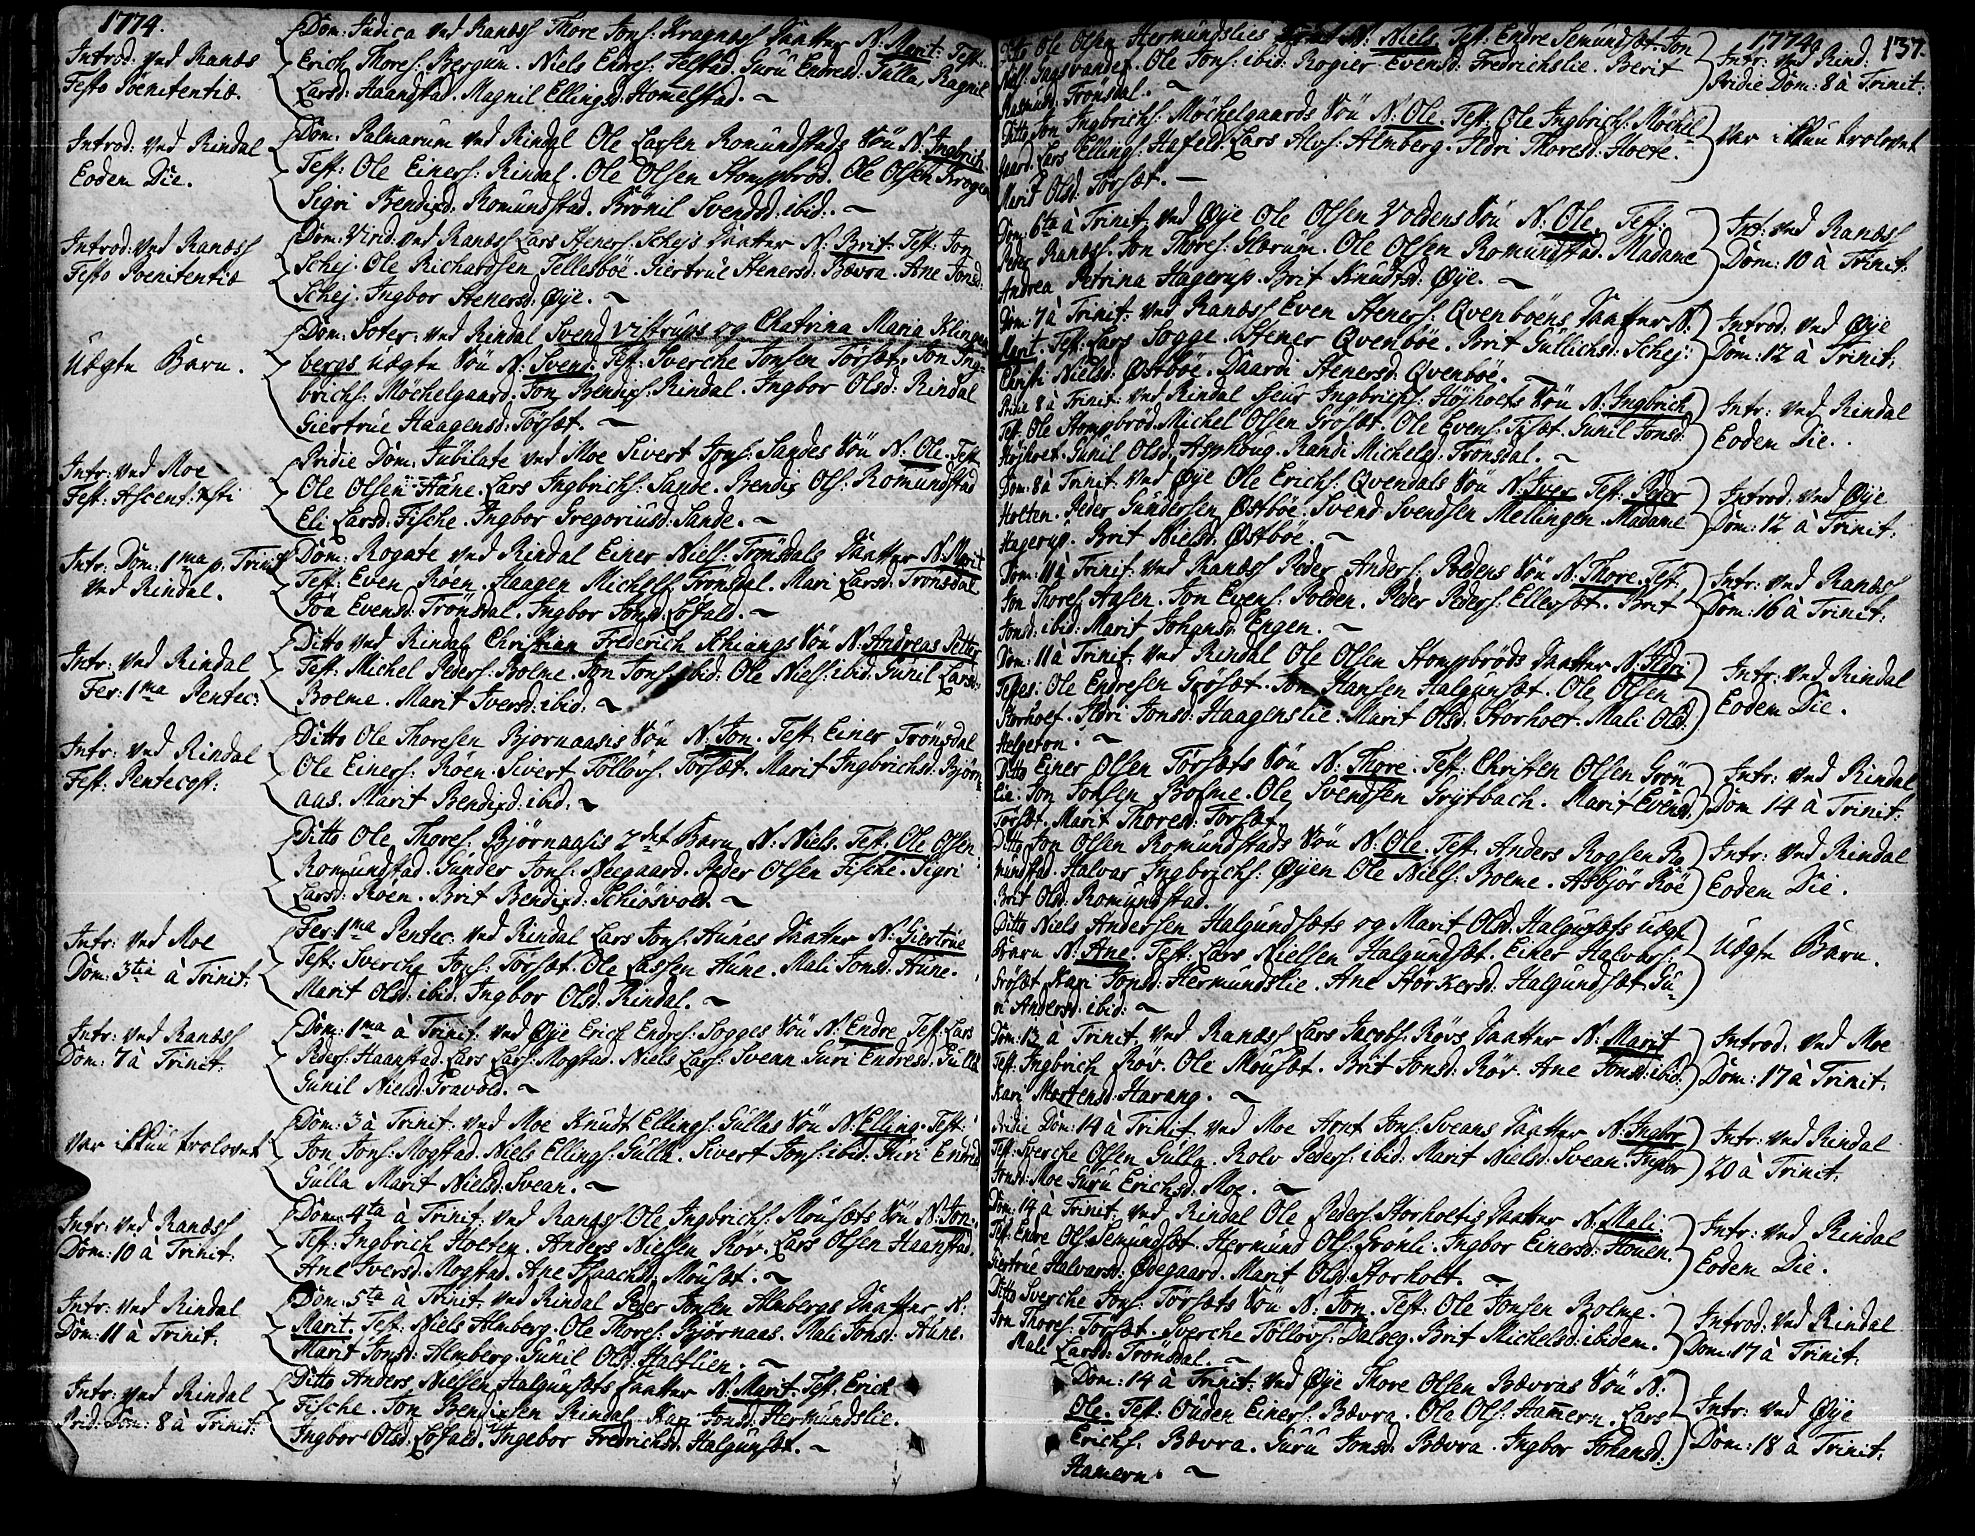 1774.
Introd: ved Ranæs
Festo Pöenitentiæ.
Dom: Judica ved Ranæs Thore Jons: Kragnæs Daatter N: Marit. Test:
Erich Thores: Bergum. Niels Endres: Gulla. Ragnil
Larsd: Haanstad. Magnil Ellingsd: Homelstad.
Introd: ved Rindal
Eodem Die.
Dom: Palmarum ved Rindal Ole Larsen Romundstads Sön N: Ingbrich
Test: Ole Einers: Rindal. Ole Olsen Stompbröd. Ole Olsen Krogen
Sigri Bendixd: Romundstad. Brönil Svendsd: ibid:
Introd: ved Ranæs
Festo Poenitentiæ
Dom: Virid: ved Ranæs Lars Steners: Schejs Daatter N: Brit. Test: Jon
Schej. Ole Richardsen Tellesböe. Giertrue Stenersd: Bævra. Ane Jonsd:
Schej. Ingbor Stenersd: Øye.
Uægte Barn.
Dom: Soter: ved Rindal Svend Vibrups og Chatrina Maria Klingen
bergs uægte Sön N: Svend. Test: Sverche Jonsen Törsæt. Jon Ing-
brichs: Möchelgaard. Jon Bendixs: Rindal. Ingbor Olsd: Rindal
Giertrue Haagensd: Törsæt.
Intr: ved Moe
Fest: Ascens: Xsti
Pridie Dom: Jubilate ved Moe Sivert Jons: Sandes Sön N: Ole. Test
Ole Olsen Hüne. Lars Ingbrichs: Sande. Bendix Ols: Romundstad
Eli Larsd: Fische. Ingbor Gregoriusd: Sande.
Intr: Dom: 1ma p. Trinit:
ved Rindal.
Dom: Rogate ved Rindal Einer Niels: Trönsdals Daatter N: Marit
Test: Even Röen. Haagen Michels: Trönsdal. Mari Larsd: Trönsdal
Göa Evensd: Trönsdal. Ingbor Jonsd: Löfald.
Intr: ved Rindal
Fer: 1ma Pentec:
Ditto ved Rindal Christian Frederich Schiangs Sön N: Andreas Petter
Test: Michel Peders: Bolme. Jon Jons: ibid: Ole Niels: ibid: Gunil Larsd:
Bolme. Marit Iversd: ibid:
Intr: ved Rindal
Fest: Pentecost:
Ditto Ole Thoresen Bjornaasis Sön N: Jon. Test. Einer Trönsdal
Ole Einers: Röen. Sivert Töllövs: Törsæt. Marit Ingbrichsd: Björn
aas. Marit Bendixd: ibid:
Ditto Ole Thores: Björnaasis 2det Barn N: Niels. Test: Ole Olsen
Romundstad. Gunder Jons: Neegaard. Peder Olsen Fische. Sigri
Larsd: Röen. Brit Bendixd: Schiösvold.
Intr: ved Moe
Dom: 3tia à Trinit:
Fer: 1ma Pentec: ved Rindal Lars Jons: Hünes Daatter N: Giertrue
Test: Sverche Jons: Törsæt. Ole Larsen Hüne. Mali Jonsd: Hüne.
Marit Olsd: ibid: Ingbor Olsd: Rindal.
Intr: ved Ranæs
Dom: 7 à Trinit:
Dom: 1ma à Trinit: ved Øye Erich Endres: Sogges Sön N: Endre Test: Lars
Peders: Haanstad. Lars Lars: Mogstad. Niels Lars: Svean Guri Endresd: Gulla
Gunil Nielsd: Gravold.
Var ickun trolovet
Dom: 3 à Trinit: ved Moe Knudt Ellings: Gullas Sön N: Elling. Test:
Jon Jons: Mogstad. Niels Ellings: Gulla. Sivert Jons: ibid: Guri Endresd:
Gulla Marit Nielsd: Svean.
Intr: ved Ranæs
Dom: 10 à Trinit:
Dom: 4ta à Trinit: ved Ranæs Ole Ingbrichs: Möusæts Sön N: Jon.
Test: Ingbrich Hoeten. Anders Nielsen Röv. Lars Olsen Haanstad.
Ane Iversd: Mogstad. Ane Isaachsd: Möusæt.
Intr: ved Rindal
Dom: 11 à Trinit:
Dom: 5ta à Trinit: ved Rindal Peder Jonsen Almbergs Daatter N:
Marit. Test: Niels Almberg. Ole Thores: Björnaas. Mali Jonsd: Hüne.
Marit Jonsd: Almberg. Gunil Olsd: Halflien.
Intr: ved Rindal
Prid: Dom: 8 à Trinit:
Ditto Anders Nielsen Halgunsæts Daatter N: Marit. Test. Erich
Fische. Jon Bendixen Rindal. Kari Jonsd: Hermundslie.
Ingbor Olsd: Löfald. Ingebor Fredrichsd: Halgunsæt.
1774. 137.
Ditto Ole Olsen Hermundslies N: Niels Test. Endre Semundsæt. Jon
Niels: Jagsvandet. Ole Jons: ibid: Rogier Evensd: Fredrichslie. Berit
Rasmusd: Trønsdal.
Intr: ved Rind:
Pridie Dom: 8 à Trinit:
Ditto Jon Ingbrichs: Möchelgaards Sön N: Ole. Test: Ole Ingbrichs: Möchel-
gaard. Lars Ellings: Hafeld. Lars Alvs: Almberg. Ildri Thoresd: Hoete.
Marit Olsd: Törsæt.
Var ickun trolovet
Dom: 6ta à Trinit: ved Øye Ole Olsen Voldens Sön N: Ole. Test:
Peder Ranæs. Jon Thores: Glærum. Ole Olsen Romundstad. Madame
Andrea Petrina Hagerup. Brit Knudtsd: Øye.
Intr: ved Ranæs
Dom: 10 à Trinit:
Dom: 7 à Trinit: ved Ranæs Even Steners: Qvenböens Daatter N:
Marit. Test: Lars Sogge. Stener Qvenböe. Brit Gullichsd: Schej.
Christi Nielsd: Østböe. Daardi Stenersd: Qvenböe.
Introd: ved Øye
Dom: 12 à Trinit:
Pridie 8 à Trinit: ved Rindal Siur Ingbrichs: Höjhoets Sön N: Ingbrich
Test: Ole Stompbröd. Michel Olsen Grösæt. Ole Evens: Tisæt. Gunil Jonsd:
Höjhoet. Gunil Olsd: Asphoug. Randi Michelsd: Trönsdal.
Intr: ved Rindal
Eodem Die.
Dom: 8 à Trinit: ved Øye Ole Erichs: Qvendals Sön N: Iver Test: Peder
Holten. Peder Gundersen Østböe. Svend Svendsen Mellingen. Madame
Hagerup. Brit Nielsd: Østböe.
Introd: ved Øye
Dom: 12 à Trinit:
Dom: 11 à Trinit: ved Ranæs Peder Anders: Poldens Sön N: Thore. Test:
Jon Thores: Aasen. Jon Evens: Polden. Peder Peders: Ellersæt. Brit
Jonsd: ibid: Marit Johansd: Engen.
Intr: ved Ranæs
Dom: 16 à Trinit:
Dom: 11 à Trinit: ved Rindal Ole Olsen Stompbröds Daatter N: Sigri
Testes: Ole Endresen Grösæt. Jon Hansen Halgunsæt. Ole Olsen
Storhoet. Ildri Jonsd: Haagenslie. Marit Olsd: Storhoet. Mali Olsd:
Helgeton.
Intr: ved Rindal
Eodem Die.
Ditto Einer Olsen Törsæts Sön N: Thore. Test: Christen Olsen Grön
lie. Jon Jonsen Bolme. Ole Svendsen Grytbach. Marit Evensd:
Törsæt. Marit Thoresd: Törsæt
Intr: ved Rindal
Dom 14 à Trinit:
Ditto Jon Olsen Romundstads Sön N: Ole. Test: Anders Rogsen Ro
mundstad. Halvar Ingbrichs: Øyen Ole Niels: Bolme. Asbjör Röe
Brit Olsd: Romundstad.
Intr: ved Rindal
Eodem Die.
Ditto Niels Andersen Halgundsæts og Marit Olsd: Halgunsæts uægte
Barn N: Ane. Test: Lars Nielsen Halgundsæt. Einer Halvars:
Grösæt Kari Jonsd: Hermundslie. Ane Storkersd: Halgundsæt Gu-
ri Andersd: ibid:
Uægte Barn.
Dom: 13 à Trinit: ved Ranæs Lars Jacobs: Rövs Daatter N: Marit
Test: Ingbrich Röv. Ole Möusæt. Brit Jonsd: Röv. Ane Jonsd: ibid:
Kari Mortensd: Harang.
Introd: ved Moe
Dom: 17 à Trinit:
Pridie Dom: 14 à Trinit: ved Moe Arnt Jons: Sveans Daatter N: Ingbor
Test: Sverche Olsen Gulla. Rolv Peders: ibid: Marit Nielsd: Svean. Ingbor
Jonsd: Moe Guru Erichsd: Moe.
Intr: ved Rindal
20 à Trinit:
Dom: 14 à Trinit: ved Rindal Ole Peders: Storhoetis Daatter N: Mali.
Test: Endre Ols: Semundsæt. Hermund Ols: Gronli. Ingbor Einersd: Honen.
Giertrue Halvarsd: Ødegaard. Marit Olsd: Storhoet.
Intr: ved Rindal
Eodem Die.
Ditto Sverche Jons: Törsæts Sön N: Jon. Test: Ole Jonsen Bolme.
Jon Thores: Törsæt. Sverche Töllövs: Dalseg. Brit Michelsd: ibidem.
Mali Larsd: Trönsdal.
Introd: ved Rindal
Dom: 17 à Trinit:
Dom: 14 à Trinit: ved Øye Thore Olsen Bævras Sön N:
Ole. Test: Ouden Einers: Bævra. Ole Ols: Hamern. Lars
Erichs: Bævra. Guru Jonsd: Bævra. Ingbor Johansd:
Hamern.
Intr: ved Øye
Dom: 18 à Trinit: